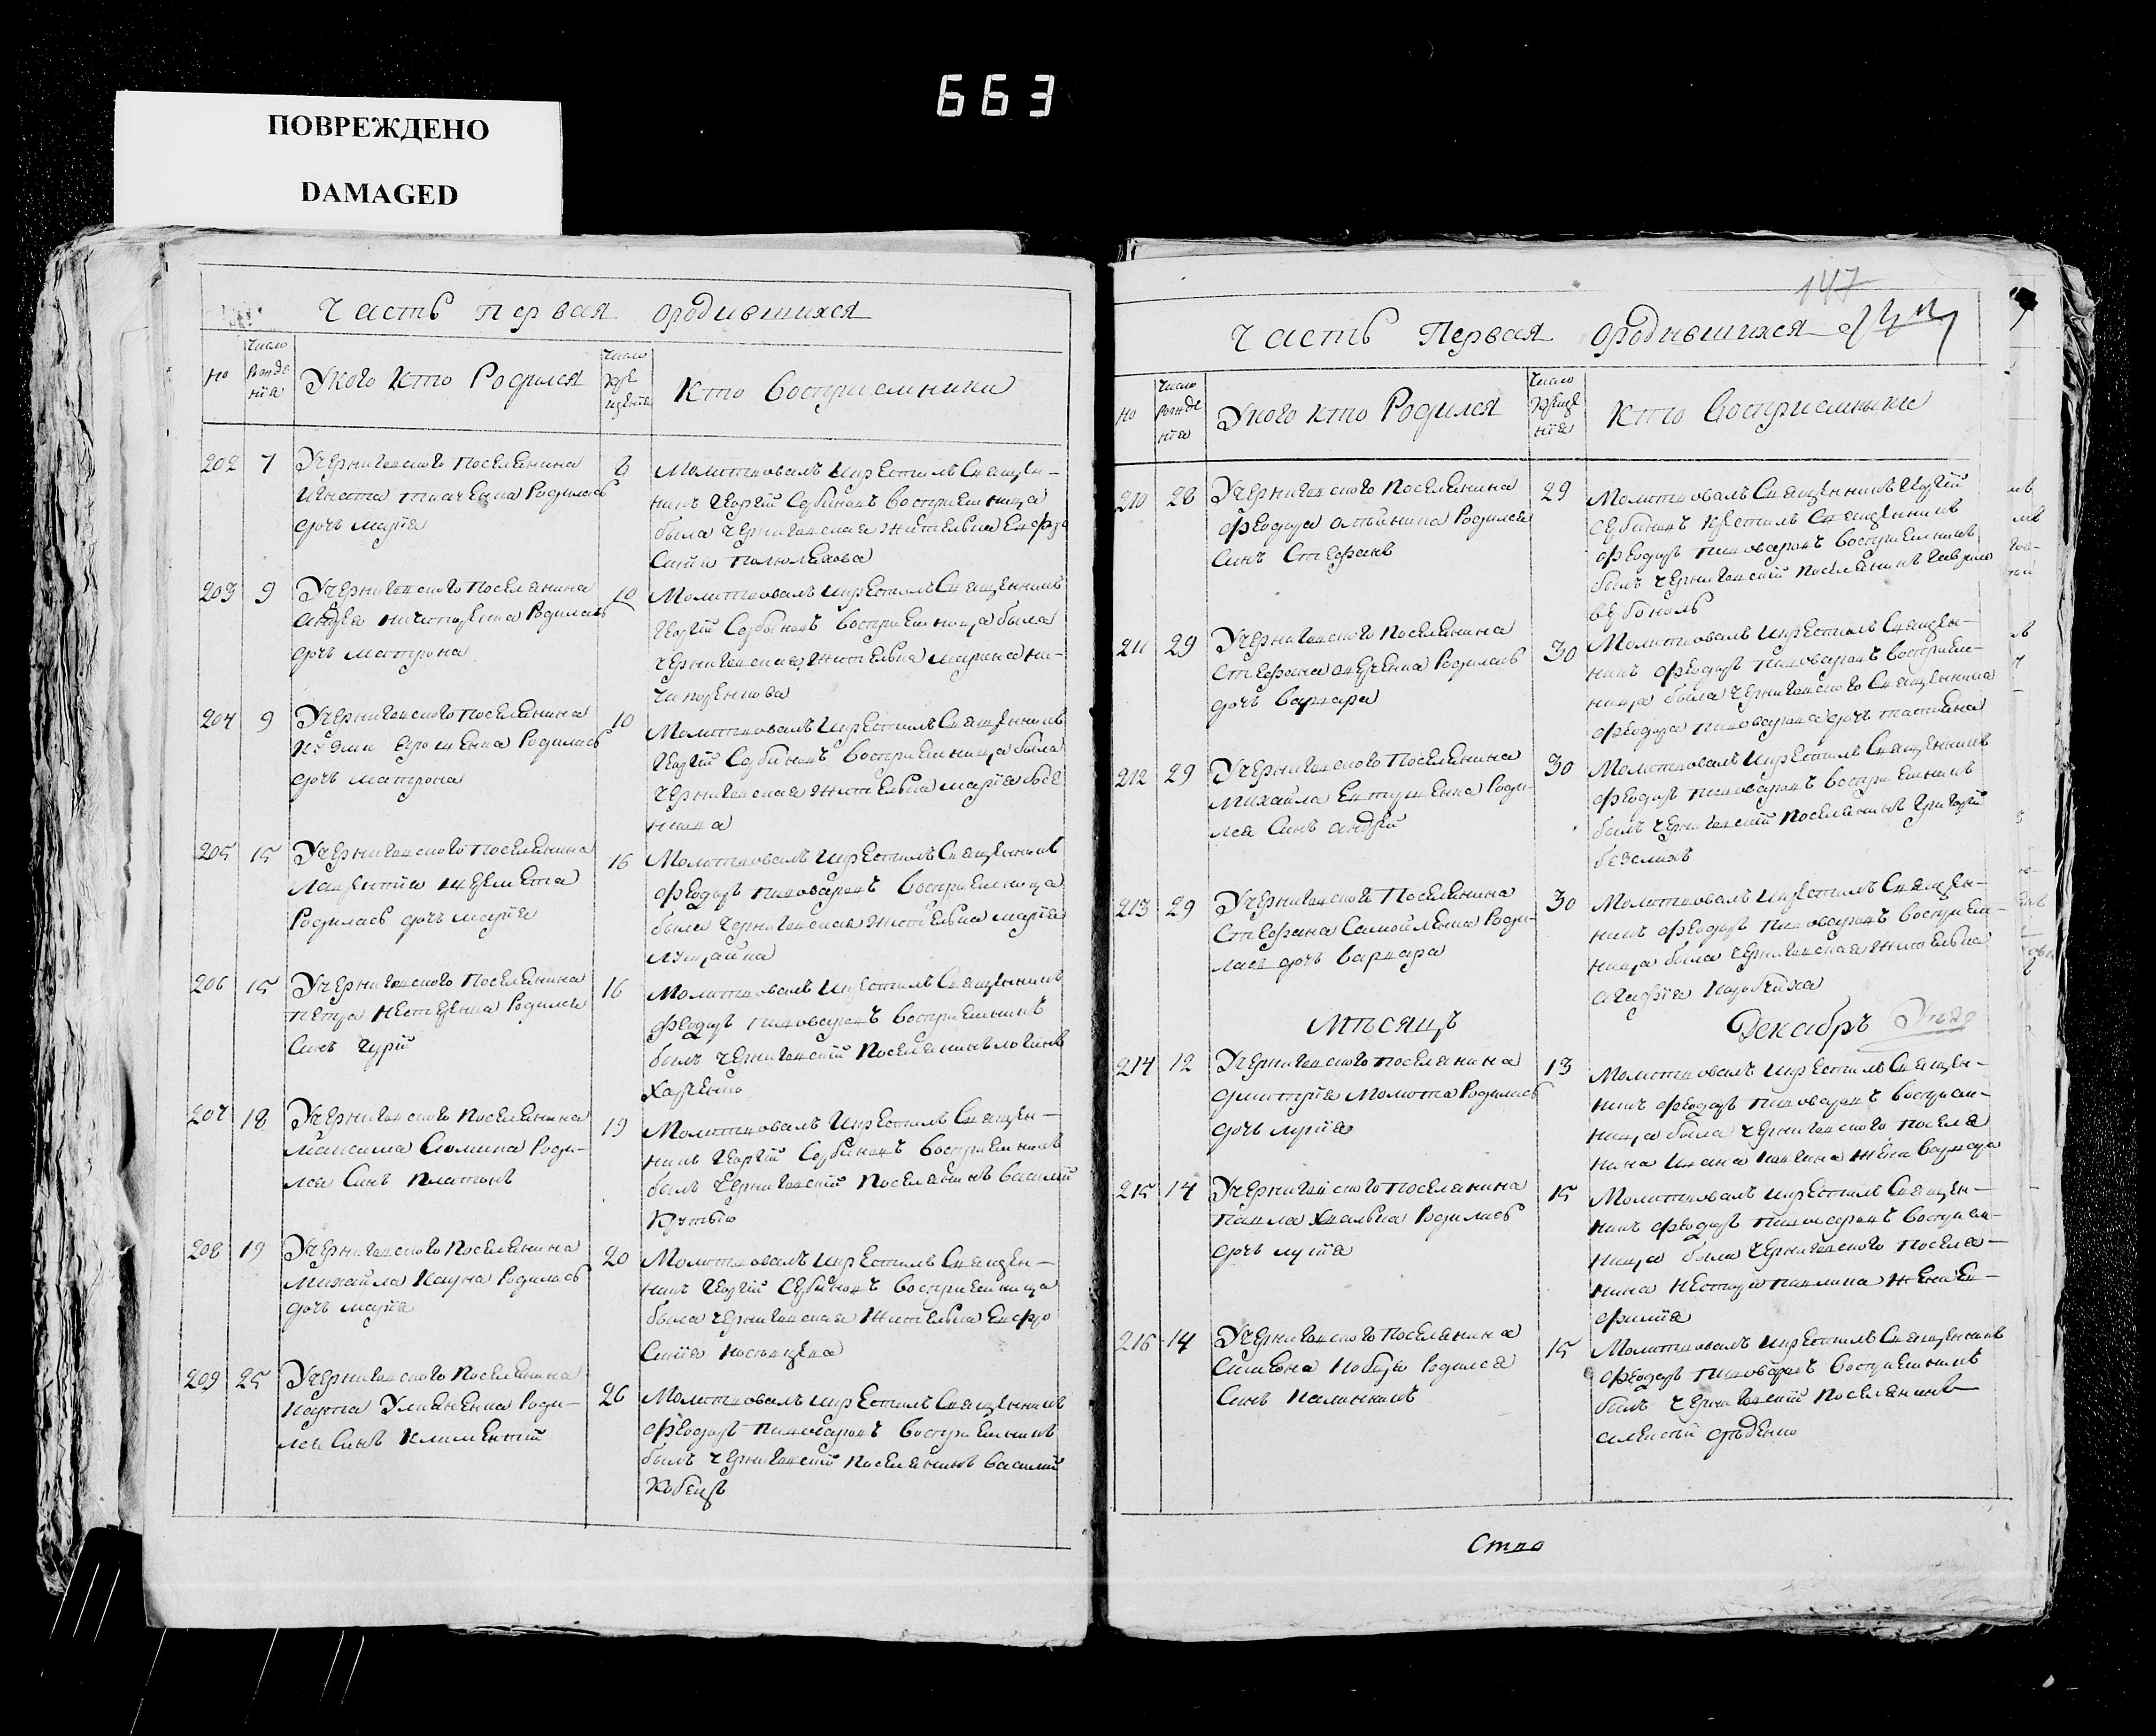 663
ПОВРЕЖДЕНО
DAMAGED
Часть первая ородившихся
Но
Число рожде нія
У кого кто Родился
Число кре щенія
Кто восприемники
202 7 У черниговского поселянина
Игната ткаченка Родилась
дочь марія
8 Молитвовалъ и крестилъ Священ-
никъ Георгій Сербиновъ восприемница
была черниговская жителька Евфро
Синія
203 9 У черниговского поселянина
андрея ничипоренка Родилась
дочь матрона
10 Молитвовалъ и крестилъ Священникъ
Георгій Сербиновъ восприемница была
черниговская жителька марина ни-
чипоренкова
204 9 У черниговского поселянина
кузми ярошенка Родилась
дочь матрона
10 Молитвовалъ и крестилъ Священникъ
Георгій Сербиновъ восприемница была
черниговская жителька марія
205 15 У черниговского поселянина
Лаврентія
Родилась дочь марія
16 Молитвовалъ и крестилъ Священникъ
феодоръ пивоваровъ восприемница
была черниговская жителька марія
206 15 У черниговского поселянина
петра нестеренка Родился
Синъ гурій
16 Молитвовалъ и крестилъ Священникъ
феодоръ пивоваровъ восприемникъ
былъ черниговскій поселянинъ логинъ
харченко
207 18 У черниговского поселянина
максима Сюмика Роди-
лся Синъ платонъ
19 Молитвовалъ и крестилъ Священ-
никъ Георгій Сербиновъ восприемникъ
былъ черниговскій поселянинъ василій
208 19 У черниговского поселянина
михайла Кауна Родилась
дочь марія
20 Молитвовалъ и крестилъ Священ-
никъ Георгій Сербиновъ восприемница
была черниговская жителька Евфро
Синія
209 25 У черниговского поселянина
карпа Роди-
лся Синъ климентій
26 Молитвовалъ и крестилъ Священникъ
феодоръ пивоваровъ восприемникъ
былъ черниговскій поселянинъ василій
Кобецъ
147
Часть Первая ородившихся
Но
Число рожде нія
У кого кто Родился
Число креще нія
Кто восприемники
210 28 У черниговского поселянина
феодора Родился
Синъ Стефанъ
29 Молитвовалъ Священникъ Георгій
Сербиновъ крестилъ Священникъ
феодоръ пивоваровъ восприемникъ
былъ черниговскій поселянинъ гаврило
211 29 У черниговского поселянина
Стефана Родилась
дочь варвара
30 Молитвовалъ и крестилъ Священ-
никъ феодоръ пивоваровъ восприем-
ница была черниговского Священника
феодора пивоварова дочь татіяна
212 29 У черниговского поселянина
михайла Евтушенка Роди-
лся Синъ андрей
30 Молитвовалъ и крестилъ Священникъ
феодоръ пивоваровъ восприемникъ
былъ черниговскій поселянинъ григорій
213 29 У черниговского поселянина
Стефана Самойленка Роди-
лась дочь варвара
30 Молитвовалъ и крестилъ Священ-
никъ феодоръ пивоваровъ восприем-
ница была черниговская жителька
агафія
Мѣсяцъ Декабрь
214 12 У черниговского поселянина
димитрія молота Родилась
дочь лукія
13 Молитвовалъ и крестилъ Священ-
никъ феодоръ пивоваровъ восприем-
ница была черниговского поселя
нина ивана жена варвара
215 14 У черниговского поселянина
павла Родилась
дочь лукія
15 Молитвовалъ и крестилъ Священ-
никъ феодоръ пивоваровъ восприем-
ница была черниговского поселя-
нина нестора жена Ев-
фимія
216 14 У черниговского поселянина
Симеона Родился
Синъ калинникъ
15 Молитвовалъ и крестилъ Священникъ
феодоръ пивоваровъ восприемникъ
былъ черниговскій поселянинъ
алексій
Ство